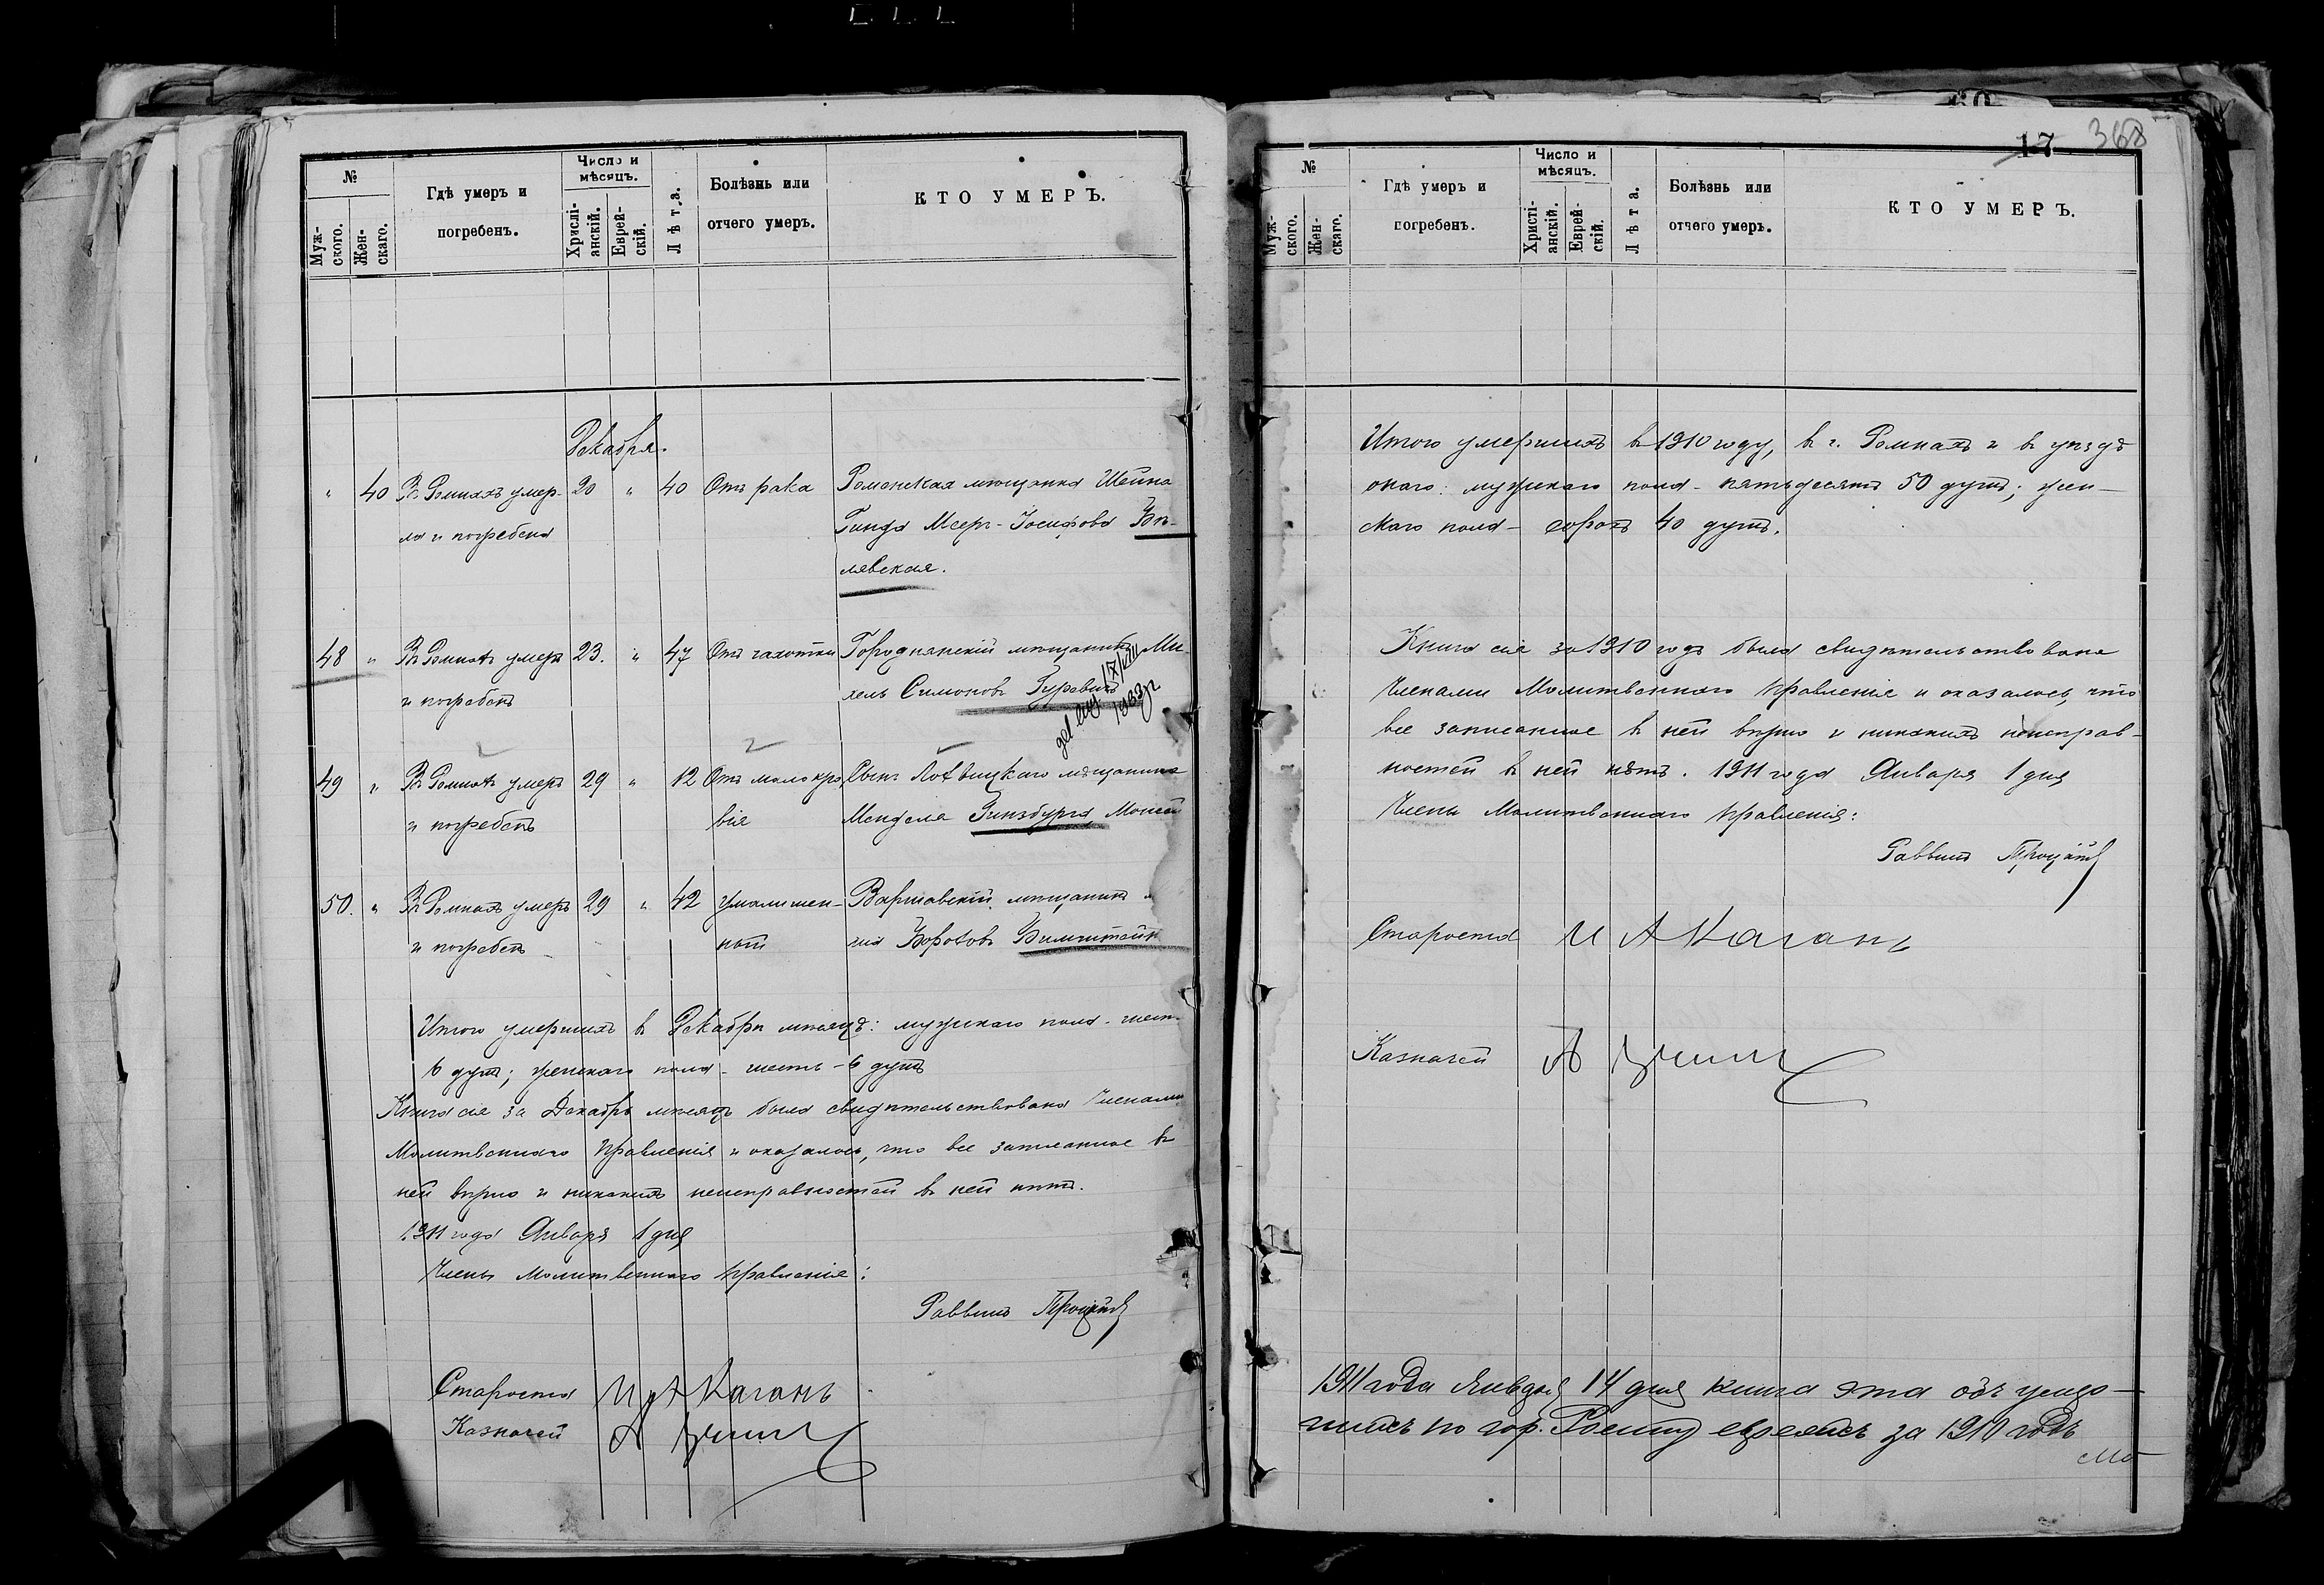 №
Муж-
ского.
Жен-
скаго.
Гдѣ умеръ и
погребенъ.
Число и
мѣсяцъ.
Христі-
анскій.
Еврей-
скій.
Лѣта.
Болѣзнь или
отчего умеръ.
КТО УМЕРЪ.
Декабря.
" 40 Въ Ромнахъ умер- 20 " 40 Отъ рака Роменская мѣщанка Шейна
ла и погребена Гинда Меер-Іосифова Бѣ-
лявская.
48 " Въ Ромнахъ умеръ 23. " 47 Отъ чахотки Городнянскій мѣщанинъ Ми-
и погребенъ хель Симоновъ Гуревичъ
17/VIII
1933 г
49 " Въ Ромнахъ умеръ 29 " 12 Отъ малокро- Сынъ Лохвицкаго мѣщанина
и погребенъ вія Менделя Гинзбурга, Моисей
50. " Въ Ромнахъ умеръ 29 " 42 умалишен- Варшавскій мѣщанинъ
и погребенъ ный Боровъ
Итого умершихъ въ Декабрѣ мѣсяцѣ: мужскаго пола - шесть
6 душъ; женскаго пола - шесть - 6 душъ
Книга сія за Декабрь мѣсяцъ была свидѣтельствована Членами
Молитвеннаго Правленія и оказалось, что все записанное въ
ней вѣрно и никакихъ неисправностей въ ней нѣтъ.
1911 года Января 1 дня
Члены Молитвеннаго Правленія:
Раввинъ
Староста И А Каганъ
Казначей А
17 368
№
Муж-
ского.
Жен-
скаго.
Гдѣ умеръ и
погребенъ.
Число и
мѣсяцъ.
Христі-
анскій.
Еврей-
скій.
Лѣта.
Болѣзнь или
отчего умеръ.
КТО УМЕРЪ.
Итого умершихъ въ 1910 году, въ г. Ромнахъ и въ уѣздѣ
онаго: мужскаго пола - пятьдесятъ 50 душъ; жен-
скаго пола - сорокъ 40 душъ.
Книга сія за 1910 годъ была свидѣтельствована
Членами Молитвеннаго Правленія и оказалось, что
все записанное въ ней вѣрно и никакихъ неисправ-
ностей въ ней нѣтъ. 1911 года Января 1 дня
Члены Молитвеннаго Правленія:
Раввинъ
Староста И А Каганъ
Казначей А
1911 года Января 14 дня книга эта объ умер-
шихъ по гор. Ромну евреяхъ за 1910 годъ